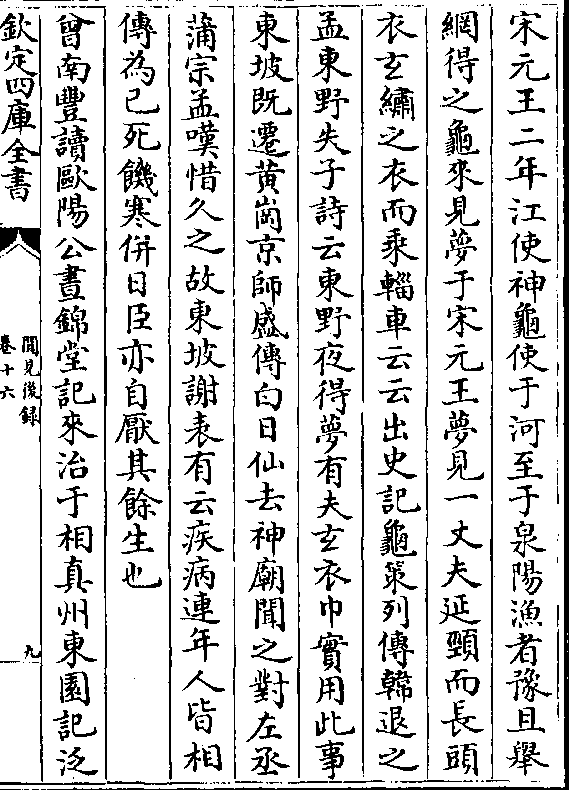 宋元王二年江使神龜使于河至于泉陽漁者豫且舉
網得之龜來見夢于宋元王夢見一丈夫延頸而長頭
衣玄繡之衣而乘輜車云云出史記龜策列傳韓退之
孟東野失子詩云東野夜得夢有夫玄衣巾實用此事
東坡既遷黄崗京師盛傳白日仙去神廟聞之對左丞
蒲宗孟嘆惜久之故東坡謝表有云疾病連年人皆相
傳為已死饑寒併日臣亦自厭其餘生也
曾南豐讀歐陽公晝錦堂記來治于相真州東園記泛
欽定四庫全書
聞見後録
卷十六
九